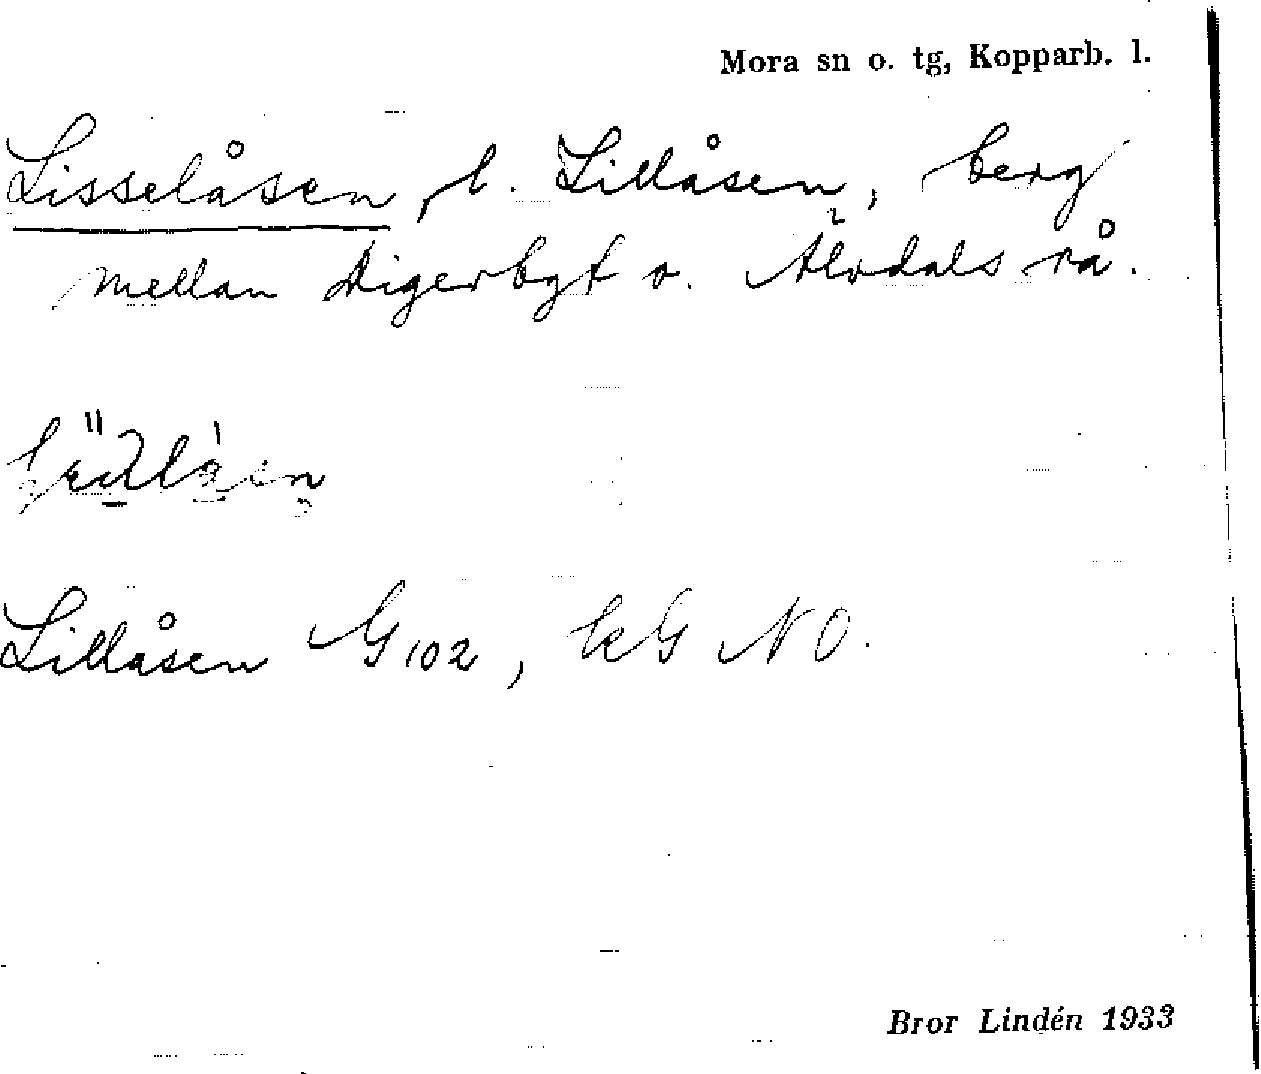 Mora sn o. tg, Kopparb. l.
Lisselåsen, l. Lillåsen, berg
mellan Digerbgt o. Älvdals rå.
Lillåsen G 102, kG NO.
Bror Lindén 1933